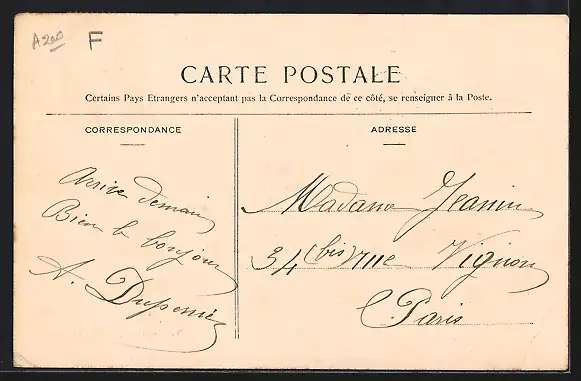 A200 F
CARTE POSTALE
Certains Pays Etrangers n'acceptant pas la Correspondance de ce côté, se renseigner à la Poste.
CORRESPONDANCE
Arrive demain
Bien le bonjour
A.
ADRESSE
Madame Jeanin
34 (bis) rue Vignon
Paris